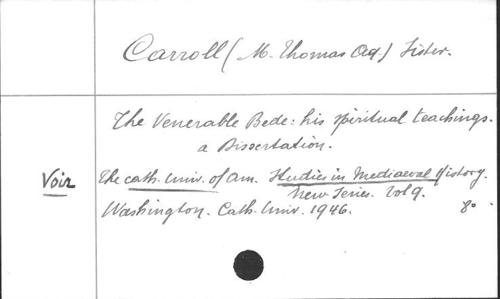 Carroll (M. Thomas Aq.) Sister.
The Venerable Bede: his spiritual teachings.
a Dissertation.
Voir The Cath. Univ. of Am. Studies in Mediaeval History.
New Series. Vol 9.
Washington. Cath. Univ. 1946. 8°